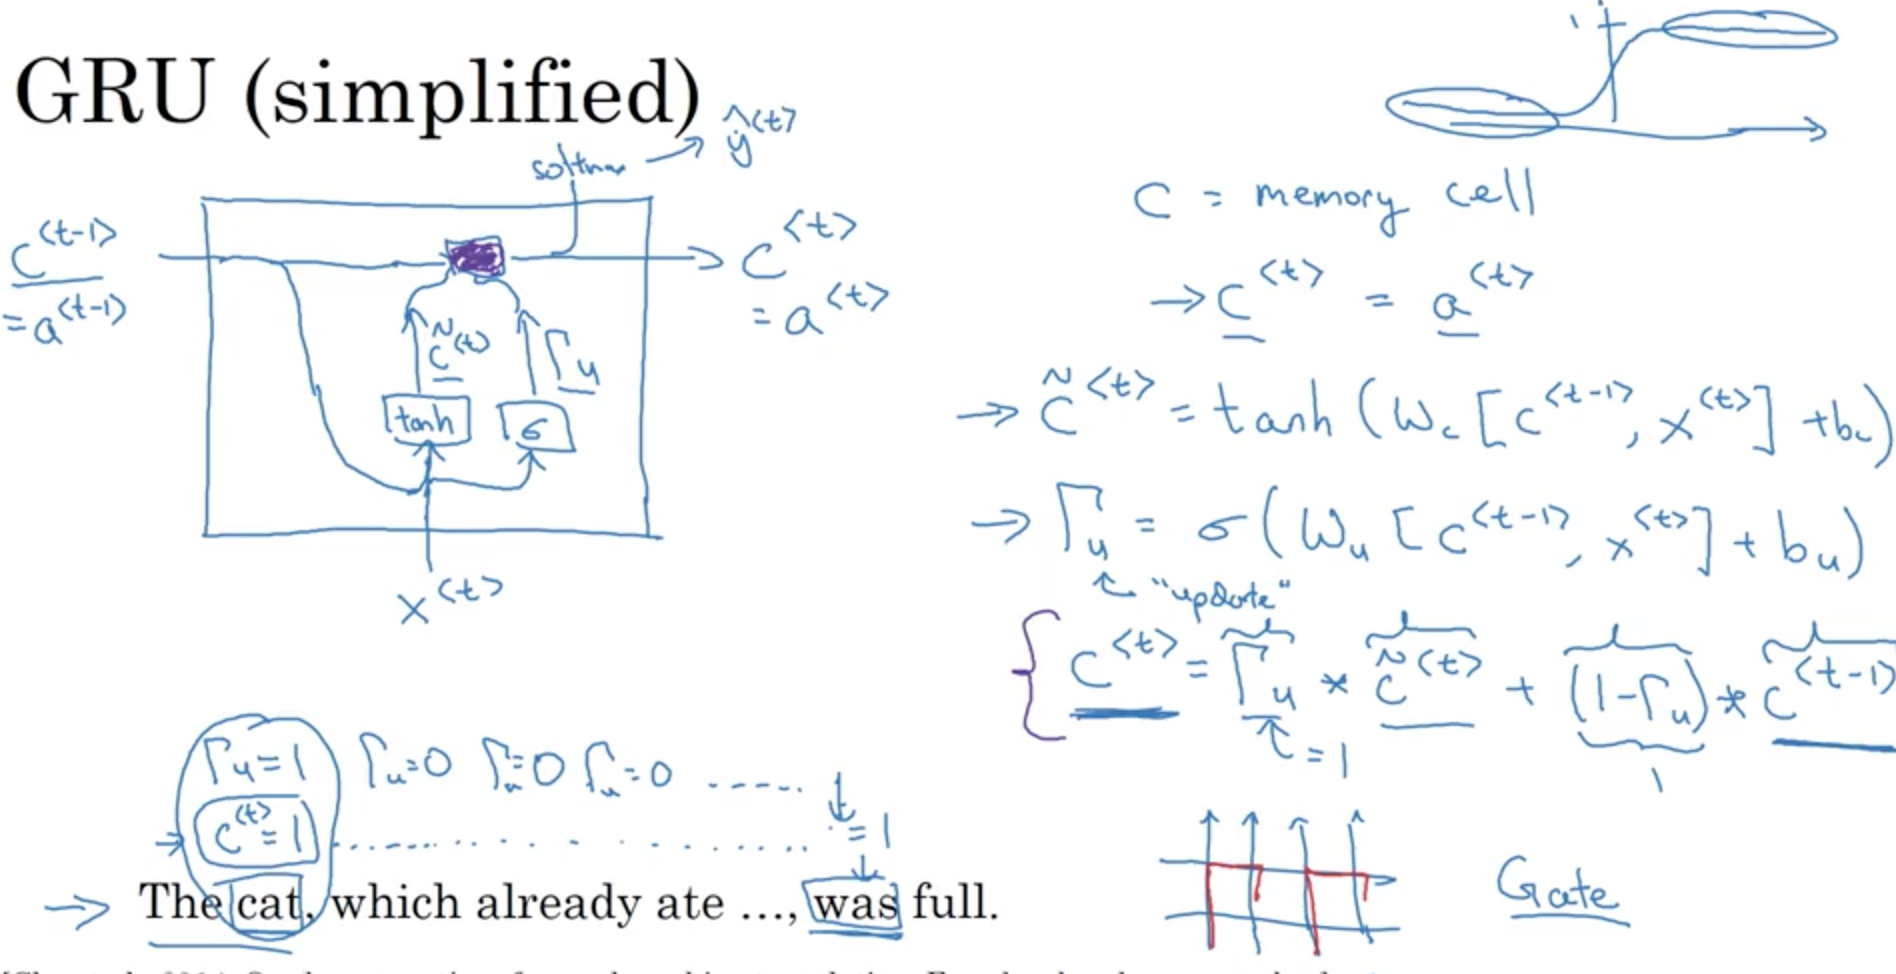 GRU (simplified)
softmax → ŷ<t>
c<t-1>
= a<t-1>
c̃<t>
Γu
tanh
σ
c<t>
= a<t>
x<t>
1
C = memory cell
→ c<t> = a<t>
→ c̃<t> = tanh (Wc [c<t-1>, x<t>] + bc)
→ Γu = σ(Wu [c<t-1>, x<t>] + bu)
"update"
c<t> = Γu * c̃<t> + (1-Γu) * c<t-1>
= 1
1
Γu=1 Γu=0 Γu=0 Γu=0 .....
c<t>=1 ........ = 1
→ The cat, which already ate ..., was full.
Gate